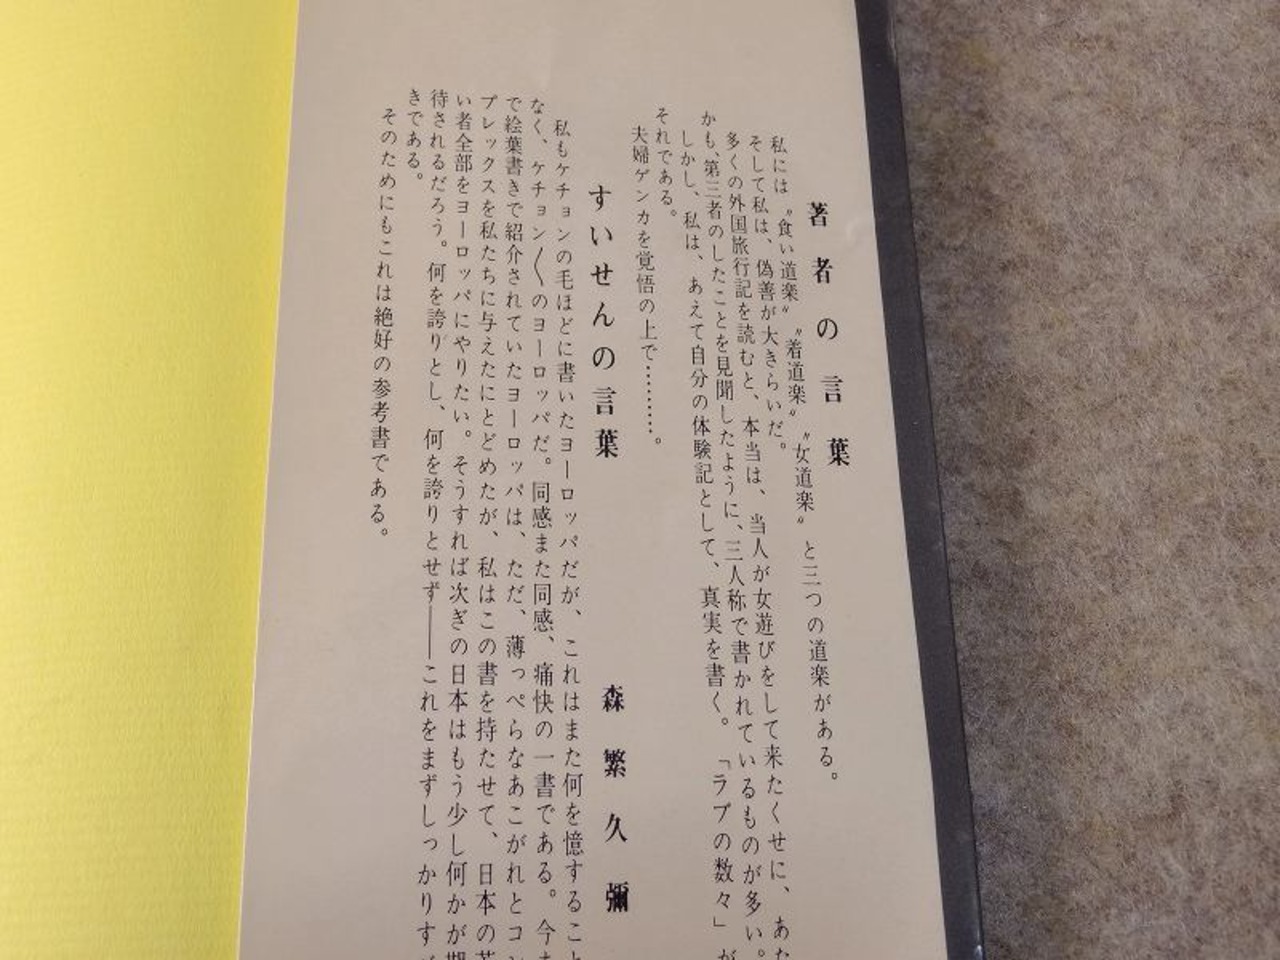 著者の言葉
私には〝食い道楽〟〝着道楽〟〝女道楽〟と三つの道楽がある。
そして私は、偽善が大きらいだ。
多くの外国旅行記を読むと、本当は、当人が女遊びをして来たくせに、あた
かも、第三者のしたことを見聞したように、三人称で書かれているものが多い。
しかし、私は、あえて自分の体験記として、真実を書く。「ラブの数々」が
それである。
夫婦ゲンカを覚悟の上で………。
すいせんの言葉
森繁久彌
私もケチョンの毛ほどに書いたヨーロッパだが、これはまた何を憶すること
なく、ケチョン〱のヨーロッパだ。同感また同感、痛快の一書である。今ま
で絵葉書きで紹介されていたヨーロッパは、ただ、薄っぺらなあこがれとコン
プレックスを私たちに与えたにとどめたが、私はこの書を持たせて、日本の若
い者全部をヨーロッパにやりたい。そうすれば次ぎの日本はもう少し何かが期
待されるだろう。何を誇りとし、何を誇りとせず――これをまずしっかりすべ
きである。
そのためにもこれは絶好の参考書である。